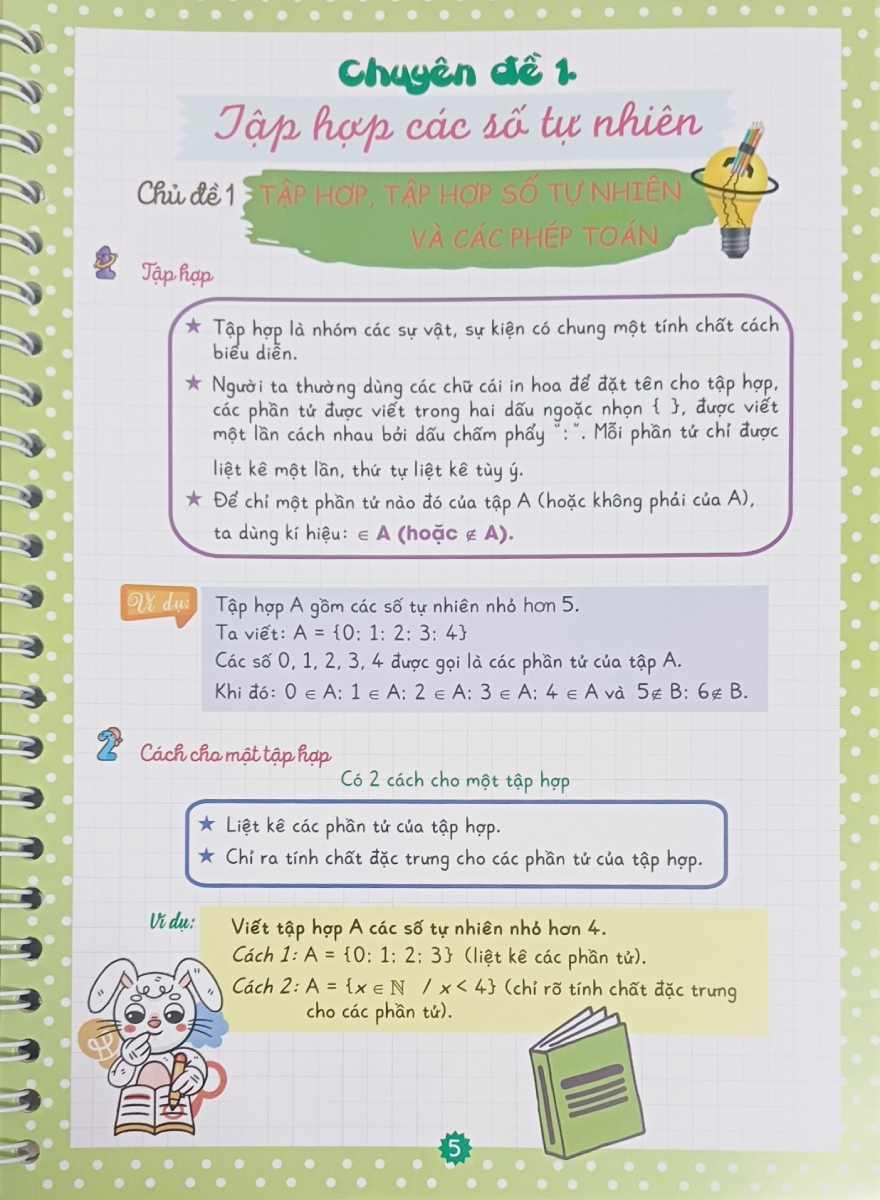 Chuyên đề 1.
Tập hợp các số tự nhiên
Chủ đề 1 TẬP HỢP, TẬP HỢP SỐ TỰ NHIÊN
VÀ CÁC PHÉP TOÁN
1 Tập hợp
★ Tập hợp là nhóm các sự vật, sự kiện có chung một tính chất cách
biểu diễn.
★ Người ta thường dùng các chữ cái in hoa để đặt tên cho tập hợp,
các phần tử được viết trong hai dấu ngoặc nhọn { }, được viết
một lần cách nhau bởi dấu chấm phẩy ":". Mỗi phần tử chỉ được
liệt kê một lần, thứ tự liệt kê tùy ý.
★ Để chỉ một phần tử nào đó của tập A (hoặc không phải của A),
ta dùng kí hiệu: ∈ A (hoặc ∉ A).
Ví dụ: Tập hợp A gồm các số tự nhiên nhỏ hơn 5.
Ta viết: A = {0: 1: 2: 3: 4}
Các số 0, 1, 2, 3, 4 được gọi là các phần tử của tập A.
Khi đó: 0 ∈ A: 1 ∈ A: 2 ∈ A: 3 ∈ A: 4 ∈ A và 5∉ B: 6∉ B.
2 Cách cho một tập hợp
Có 2 cách cho một tập hợp
★ Liệt kê các phần tử của tập hợp.
★ Chỉ ra tính chất đặc trưng cho các phần tử của tập hợp.
Ví dụ: Viết tập hợp A các số tự nhiên nhỏ hơn 4.
Cách 1: A = {0: 1: 2: 3} (liệt kê các phần tử).
Cách 2: A = {x ∈ ℕ / x < 4} (chỉ rõ tính chất đặc trưng
cho các phần tử).
5